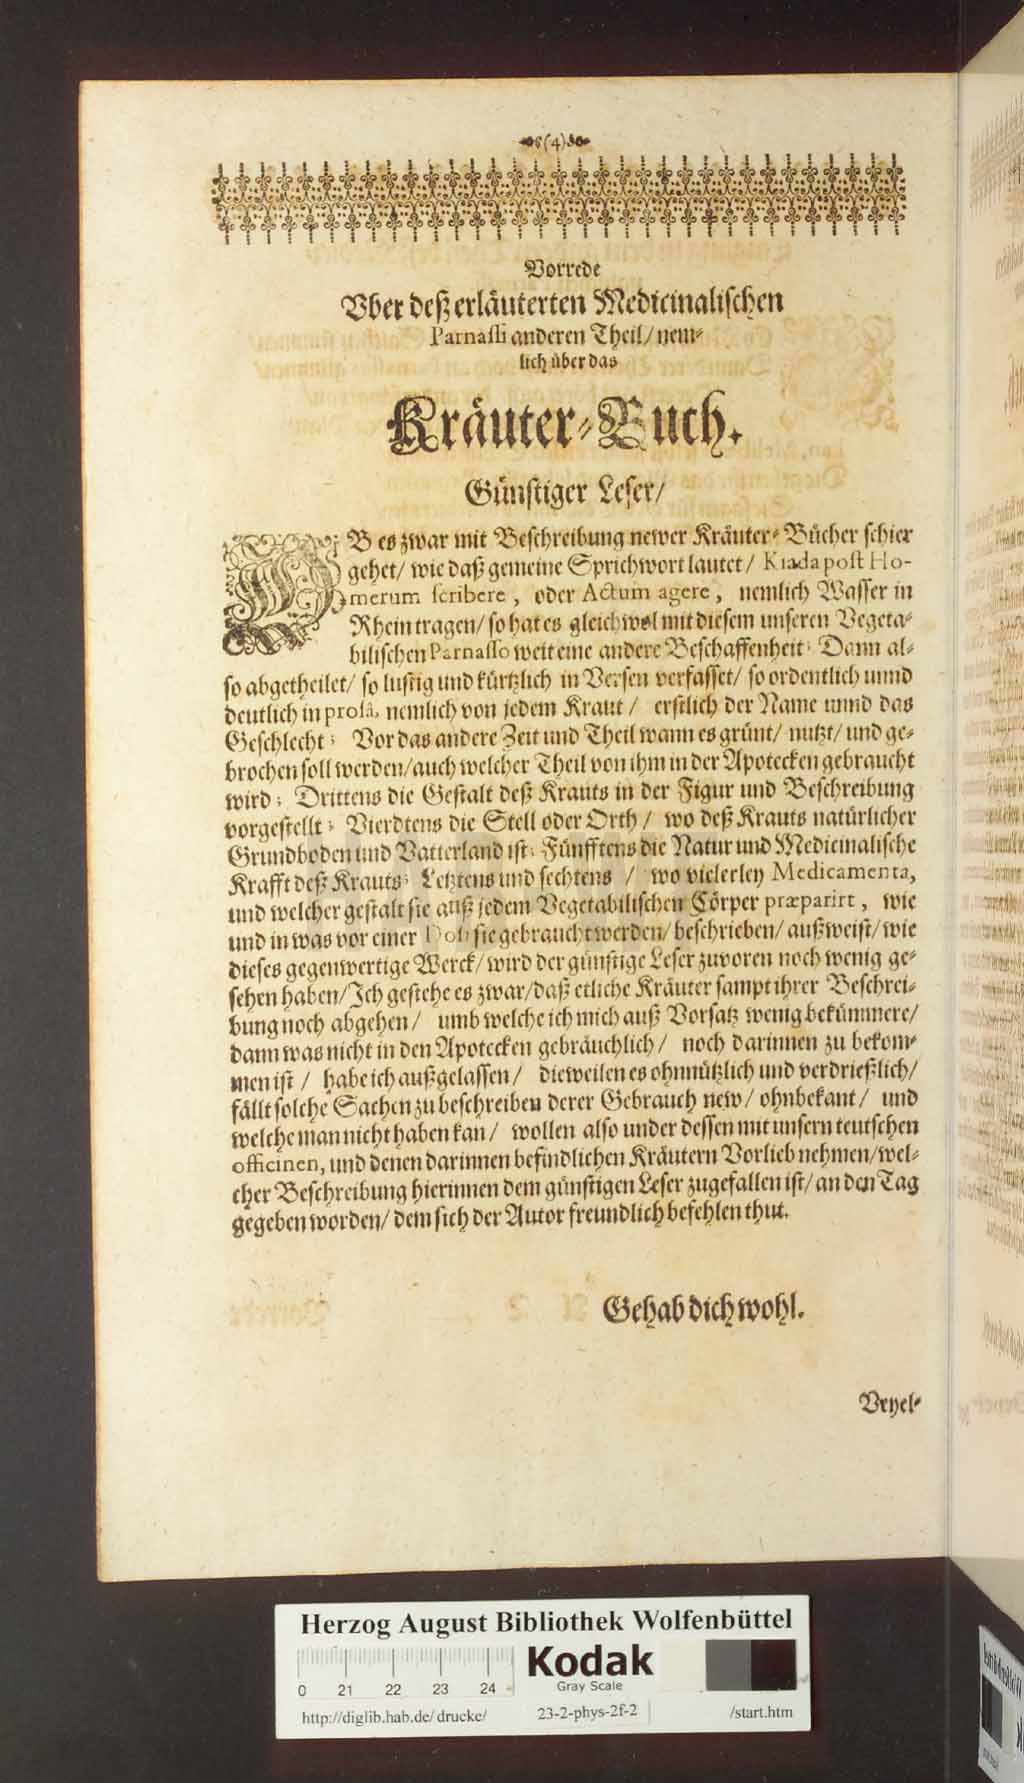 (4)
Vorrede
Vber deß erläuterten Medicinalischen
Parnassi anderen Theil/ nem-
lich über das
Kräuter-Buch.
Günstiger Leser/
OB es zwar mit Beschreibung newer Kräuter-Bücher schier
gehet/ wie daß gemeine Sprichwort lautet/ Kiada post Ho-
merum scribere, oder Actum agere, nemlich Wasser in
Rhein tragen/ so hat es gleichwol mit diesem unseren Vegeta-
bilischen Parnasso weit eine andere Beschaffenheit; Dann al-
so abgetheilet/ so lustig und kürtzlich in Versen verfasset/ so ordentlich unnd
deutlich in prosâ, nemlich von jedem Kraut/ erstlich der Name unnd das
Geschlecht; Vor das andere Zeit und Theil wann es grünt/ nutzt/ und ge-
brochen soll werden/ auch welcher Theil von ihm in der Apotecken gebraucht
wird; Drittens die Gestalt deß Krauts in der Figur und Beschreibung
vorgestellt; Vierdtens die Stell oder Orth/ wo deß Krauts natürlicher
Grundboden und Vatterland ist; Fünfftens die Natur und Medicinalische
Krafft deß Krauts; Letztens und sechtens / wo vielerley Medicamenta,
und welcher gestalt sie auß jedem Vegetabilischen Cörper præparirt, wie
und in was vor einer Dosi sie gebraucht werden/ beschrieben/ außweist/ wie
dieses gegenwertige Werck/ wird der günstige Leser zuvoren noch wenig ge-
sehen haben/ Ich gestehe es zwar/ daß etliche Kräuter sampt ihrer Beschrei-
bung noch abgehen/ umb welche ich mich auß Vorsatz wenig bekümmere/
dann was nicht in den Apotecken gebräuchlich/ noch darinnen zu bekom-
men ist / habe ich außgelassen/ dieweilen es ohnnützlich und verdrießlich/
fällt solche Sachen zu beschreiben derer Gebrauch new/ ohnbekant/ und
welche man nicht haben kan/ wollen also under dessen mit unsern teutschen
officinen, und denen darinnen befindlichen Kräutern Vorlieb nehmen/ wel-
cher Beschreibung hierinnen dem günstigen Leser zugefallen ist/ an den Tag
gegeben worden/ dem sich der Autor freundlich befehlen thut.
Gehab dich wohl.
Vryel-
Herzog August Bibliothek Wolfenbüttel
Kodak
Gray Scale
0 21 22 23 24
http://diglib.hab.de/drucke/ 23-2-phys-2f-2 /start.htm